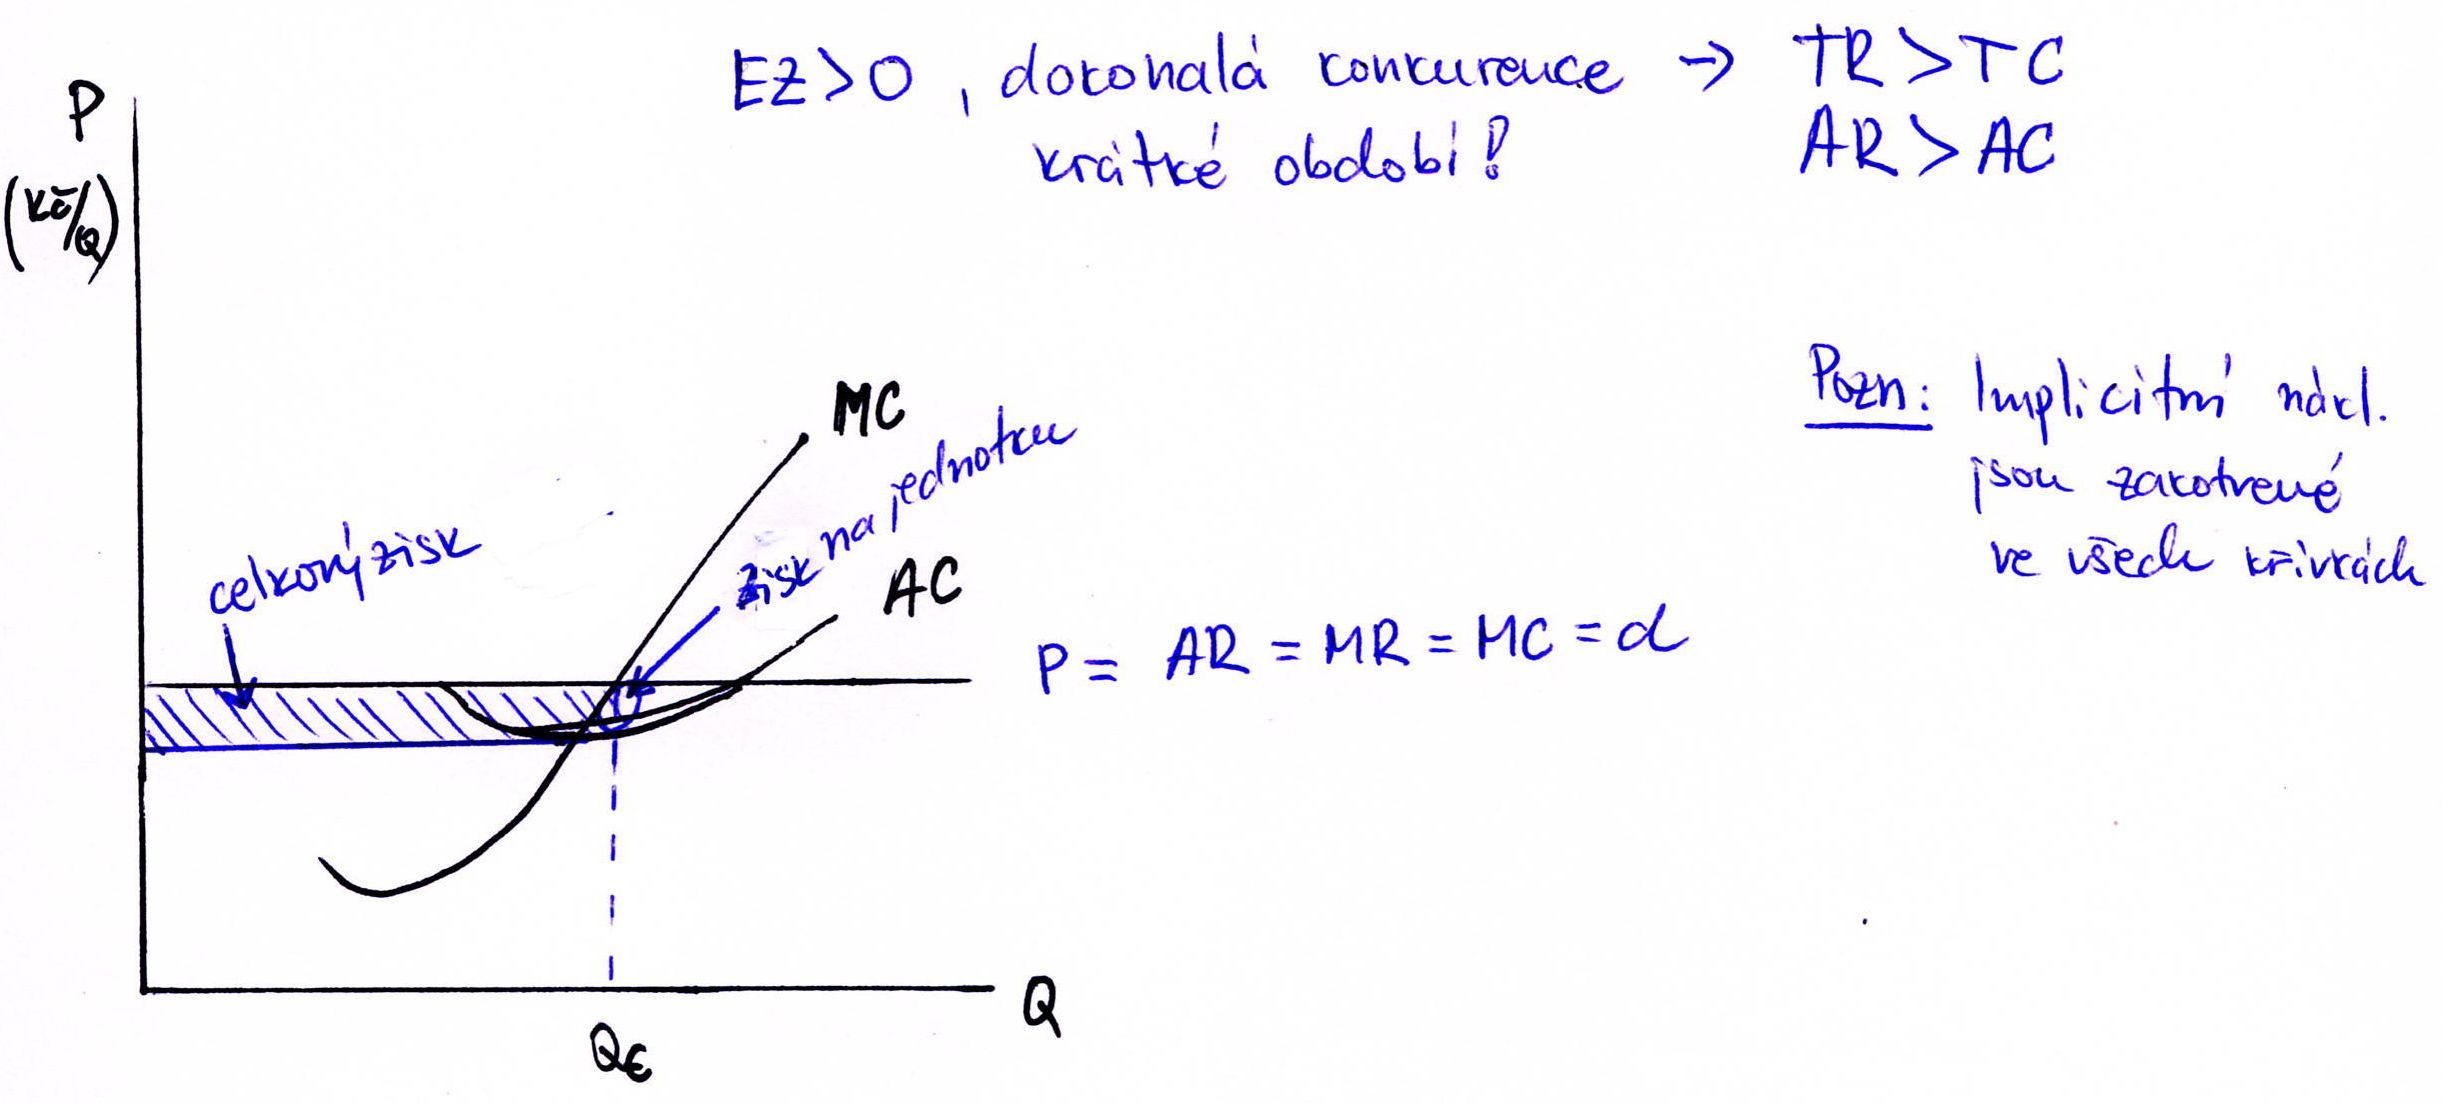 EZ>0, dokonalá konkurence → TR>TC
krátké období! AR>AC
P
(Kč/Q)
Pozn: Implicitní nákl.
jsou zakotvené
ve všech křivkách
MC
zisk na jednotku
celkový zisk
AC
P = AR = MR = MC = d
Q
QE